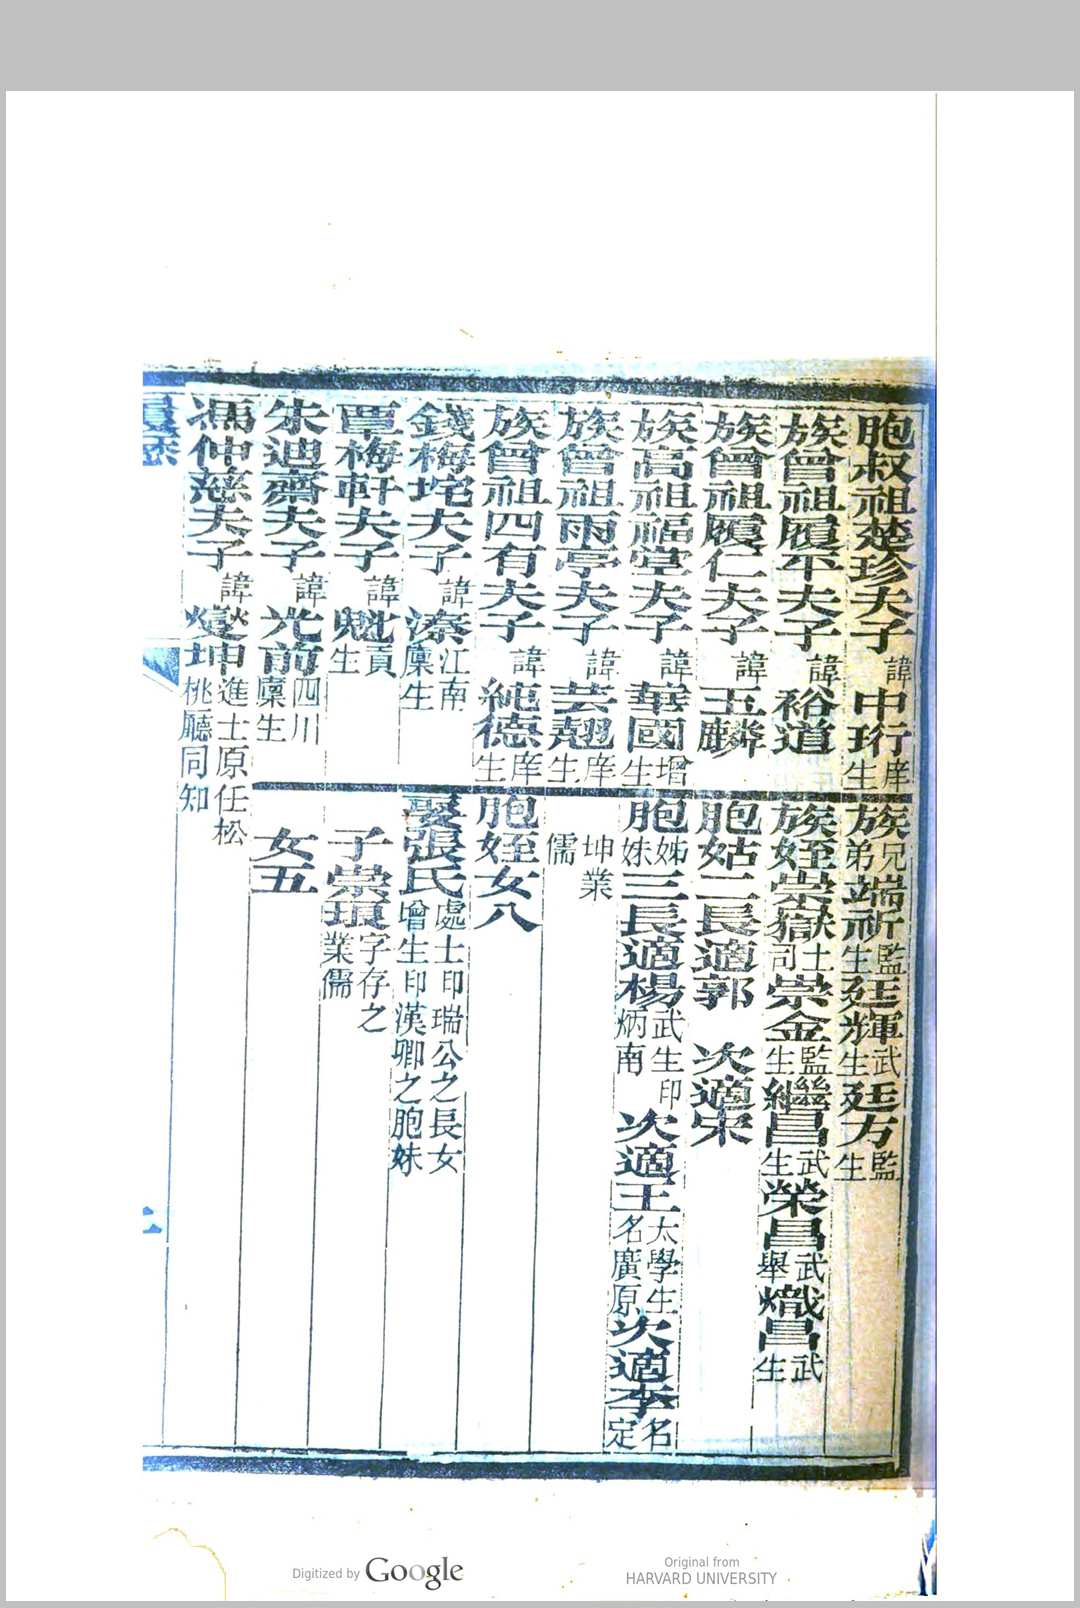 胞叔祖楚珍夫子諱中珩庠生
族曾祖履平夫子諱裕道
族曾祖履仁夫子諱玉麟
族高祖福堂夫子諱華國增生
族曾祖雨亭夫子諱芸翹庠生
族曾祖四有夫子諱純德庠生
錢梅坨夫子諱溱江南廩生
覃梅軒夫子諱魁貢生
朱迪齋夫子諱光前四川廩生
馮仲慈夫子諱燮坤進士原任松桃廳同知
族兄弟端祈監生廷輝武生廷方監生
族姪崇嶽土司崇金監生繼昌武生榮昌武舉熾昌武生
胞姑二長適郭 次適宋
胞姊妹三長適楊武生印炳南次適王太學生名廣原次適李名定
坤業儒
胞姪女八
娶張氏處士印瑞公之長女增生印漢卿之胞妹
子崇 字存之業儒
女五
Digitized by Google
Original from
HARVARD UNIVERSITY